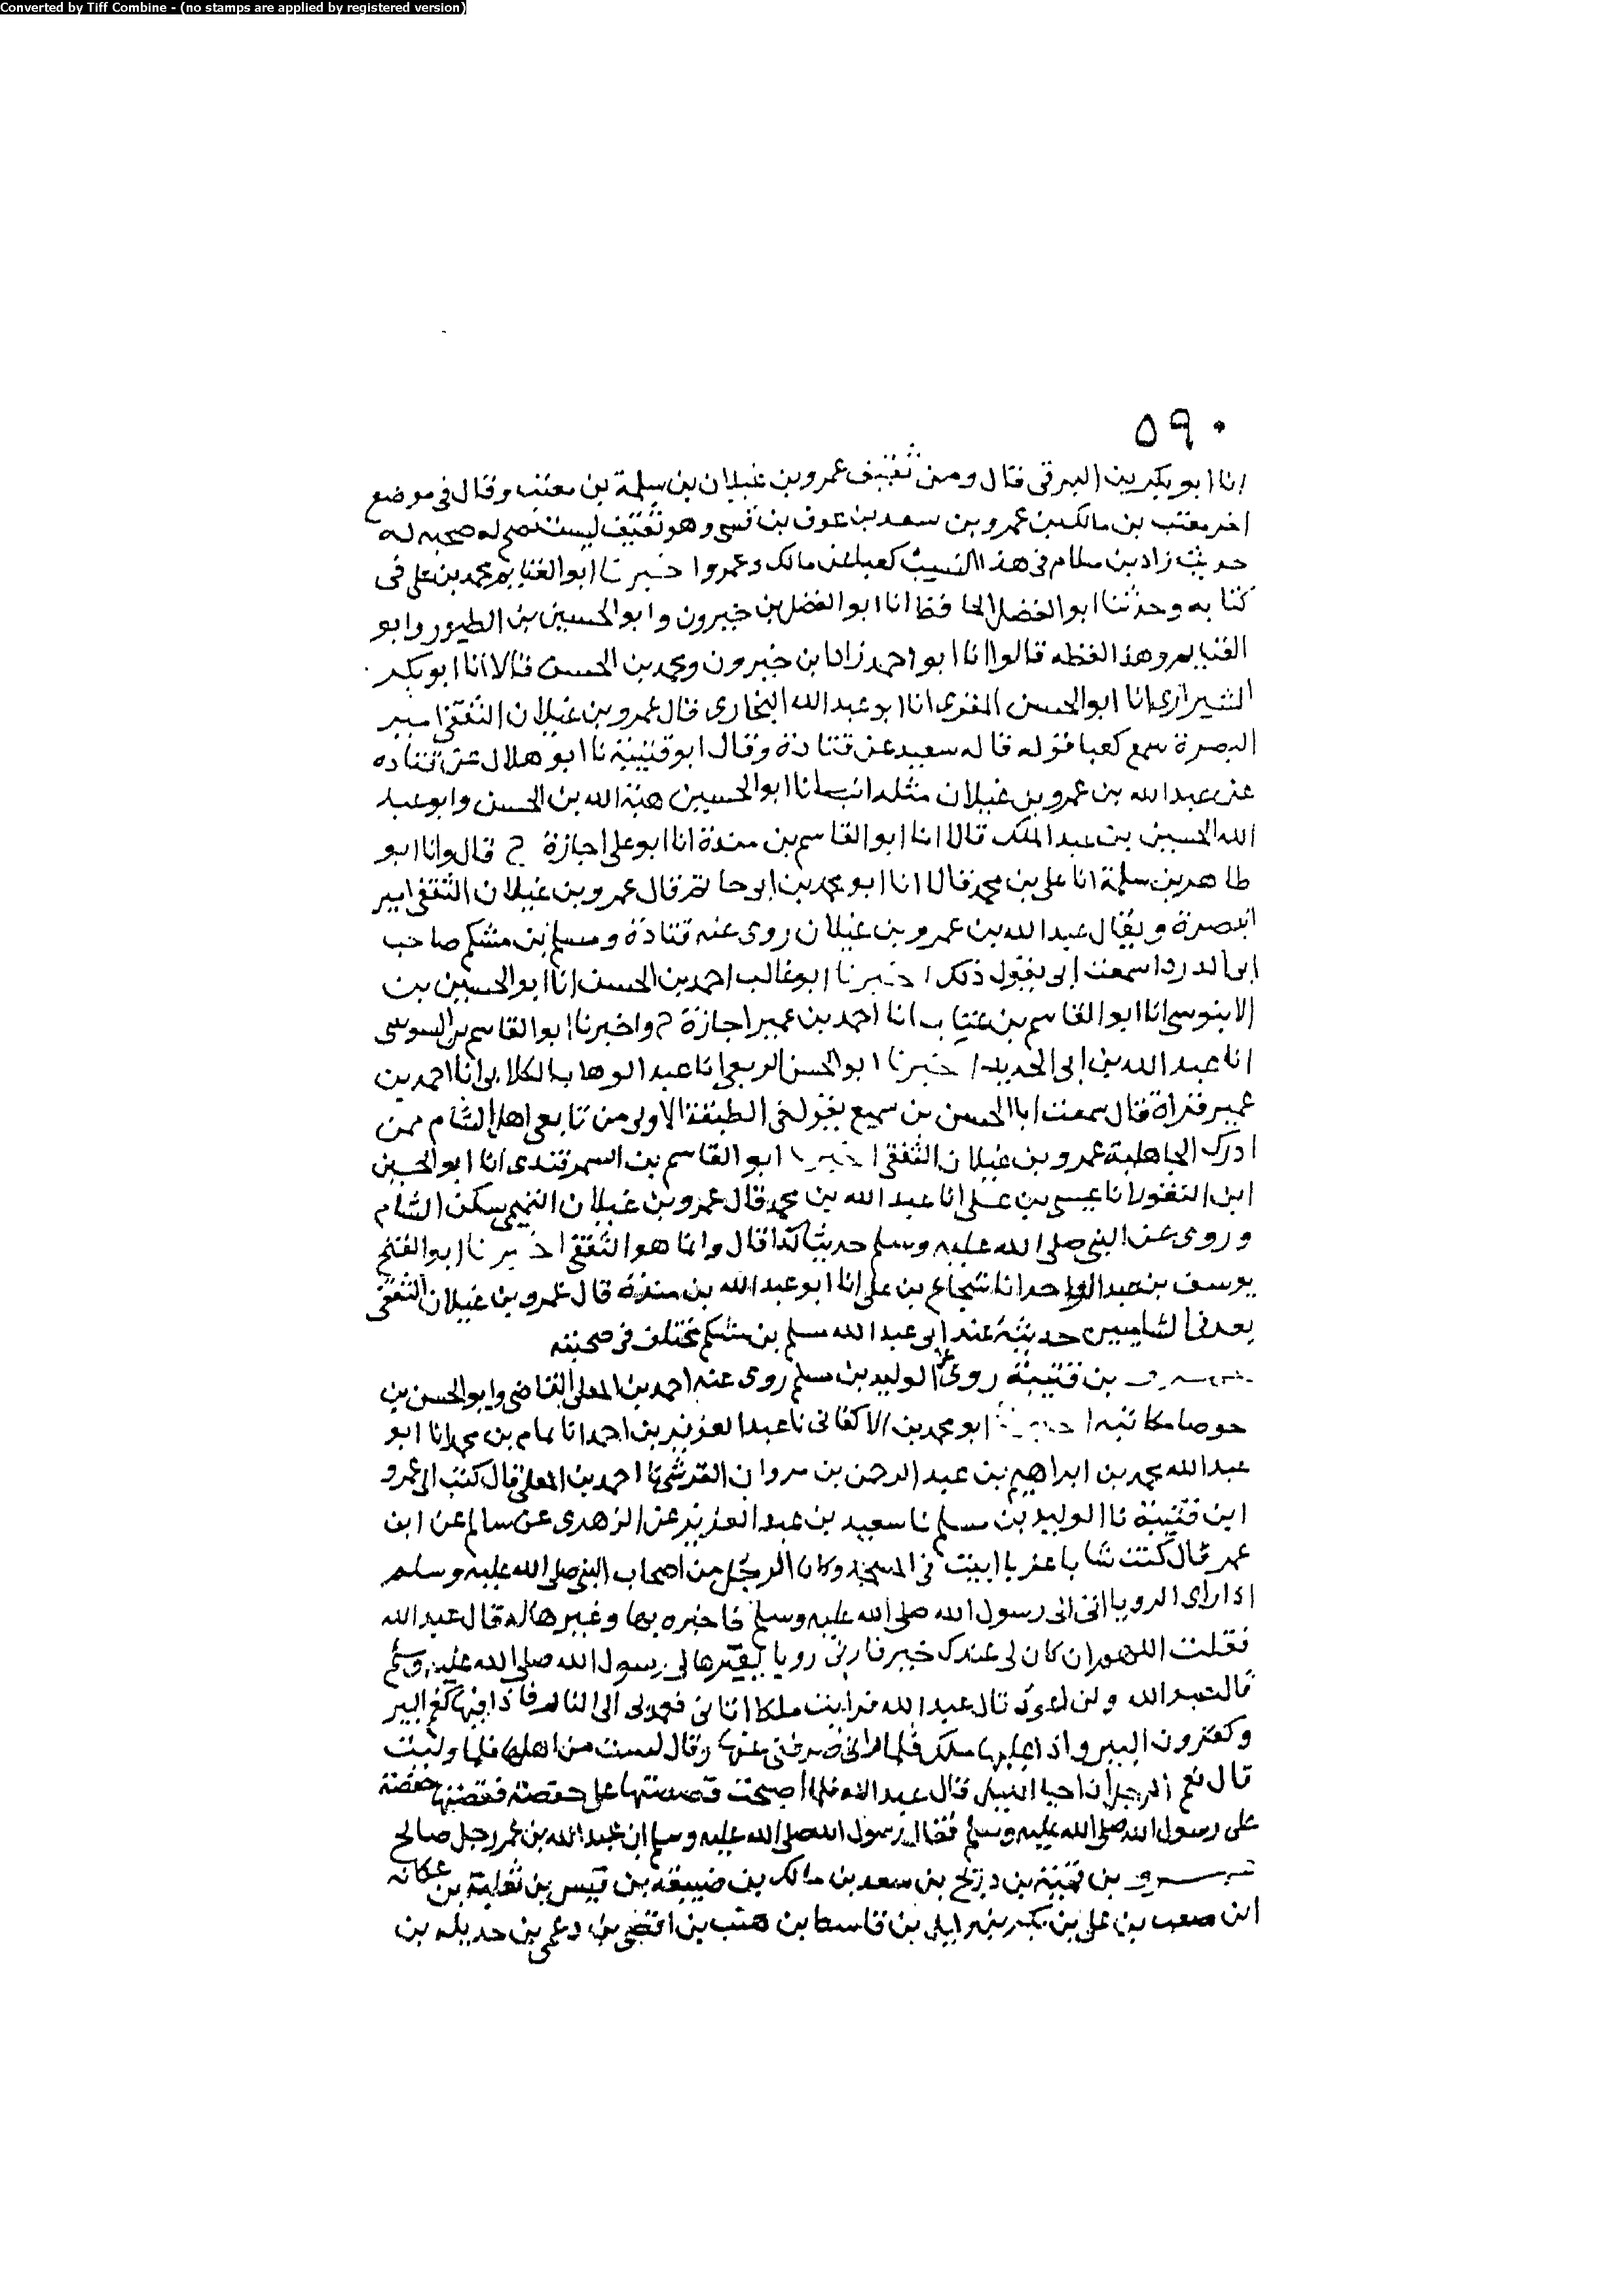 Converted by Tiff Combine - (no stamps are applied by registered version)
٥٩٠
انا ابو بكر بن البرقى قال ومن ثقيف عمرو بن غيلان بن سلمة بن معتب وقال فى موضع
اخر معتب بن مالك بن عمرو بن سعد بن عوف بن قسى وهو ثقيف ليست تصح له صحبه له
حديث زاد بن سلام فى هذا النسب كعبا بن مالك وعمروا خبرنا ابو الغنايم محمد بن على فى
كتابه وحدثنا ابو الفضل الحافظ انا ابو الفضل بن خيرون وابو الحسين بن الطيور وابو
الغنايم وهذا لفظه قالوا انا ابو احمد زاد ابن خيرون ومحمد بن الحسن قالا انا ابو بكر
الشيرازى انا ابو الحسن المقرى انا ابو عبد الله البخارى قال عمرو بن غيلان الثقفى امير
البصرة سمع كعبا قوله قاله سعيد عن قتادة وقال ابو قتيبة نا ابو هلال عن قتاده
عن عبد الله بن عمرو بن غيلان مثله انبانا ابو الحسين هبة الله بن الحسن وابو عبد
الله الحسين بن عبد الملك قالا انا ابو القاسم بن مندة انا ابو على اجازة ح قال وانا ابو
طاهر بن سلمة انا على بن محمد قالا انا ابو محمد بن ابى حاتم قال عمرو بن غيلان الثقفى امير
البصرة ويقال عبد الله بن عمرو بن غيلان روى عنه قتادة ومسلم بن مشكم صاحب
ابى الدردا سمعت ابى يقول ذلك اخبرنا ابو غالب احمد بن الحسن انا ابو الحسين بن
الابنوسى انا ابو القاسم بن عتاب انا احمد بن عمير اجازة ح واخبرنا ابو القاسم بن السوسى
انا عبد الله بن ابى الحديد اخبرنا ابو الحسن الربعى انا عبد الوهاب الكلابى انا احمد بن
عمير قراة قال سمعت ابا الحسن بن سميع يقول فى الطبقة الاولى من تابعى اهل الشام ممن
ادرك الجاهلية عمرو بن غيلان الثقفى اخبرنا ابو القاسم بن السمرقندى انا ابو الحسين
ابن النقور انا عيسى بن على انا عبد الله بن محمد قال عمرو بن غيلان التيمى سكن الشام
وروى عن النبى صلى الله عليه وسلم حديثا كذا قال وانما هو الثقفى اخبرنا ابو الفتح
يوسف بن عبد الواحد انا شجاع بن على انا ابو عبد الله بن مندة قال عمرو بن غيلان الثقفى
يعد فى الشاميين حديثه عند ابى عبد الله مسلم بن مشكم مختلف فى صحبته
عمرو بن قتيبة روى عن الوليد بن مسلم روى عنه احمد بن المعلى القاضى وابو الحسن بن
جوصا مكاتبه اخبرنا ابو محمد بن الاكفانى نا عبد العزيز بن احمد انا تمام بن محمد انا ابو
عبد الله محمد بن ابراهيم بن عبد الرحمن بن مروان القرشى نا احمد بن المعلى قال كتب الى عمرو
ابن قتيبة نا الوليد بن مسلم نا سعيد بن عبد العزيز عن الزهرى عن سالم عن ابن
عمر قال كنت شابا عزبا ابيت فى المسجد وكان الرجل من اصحاب النبى صلى الله عليه وسلم
اذا راى الرويا اتى الى رسول الله صلى الله عليه وسلم فاخبره بها وعبرها له قال عبد الله
فقلت اللهم ان كان لى عندك خير فارنى رويا يعبرها لى رسول الله صلى الله عليه وسلم
قال عبد الله قال عبد الله فرايت ملكا اتانى فعمد بى الى النار فاذا فيها كغم البير
وكقرون البير واذا عليها ملك فلما رانى صرفنى عنها وقال لست من اهلها فلما وليت
قال نعم الرجل اذا احيا الليل قال عبد الله فلما اصبحت قصصتها على حفصة فقصتها حفصة
على رسول الله صلى الله عليه وسلم فقال رسول الله صلى الله عليه وسلم ان عبد الله بن عمر رجل صالح
عمرو بن قميئة بن ذريح بن سعد بن مالك بن ضبيعه بن قيس بن ثعلبة بن عكابه
ابن صعب بن على بن بكر بن وايل بن قاسط بن هنب بن افصى بن دعمى بن جديله بن